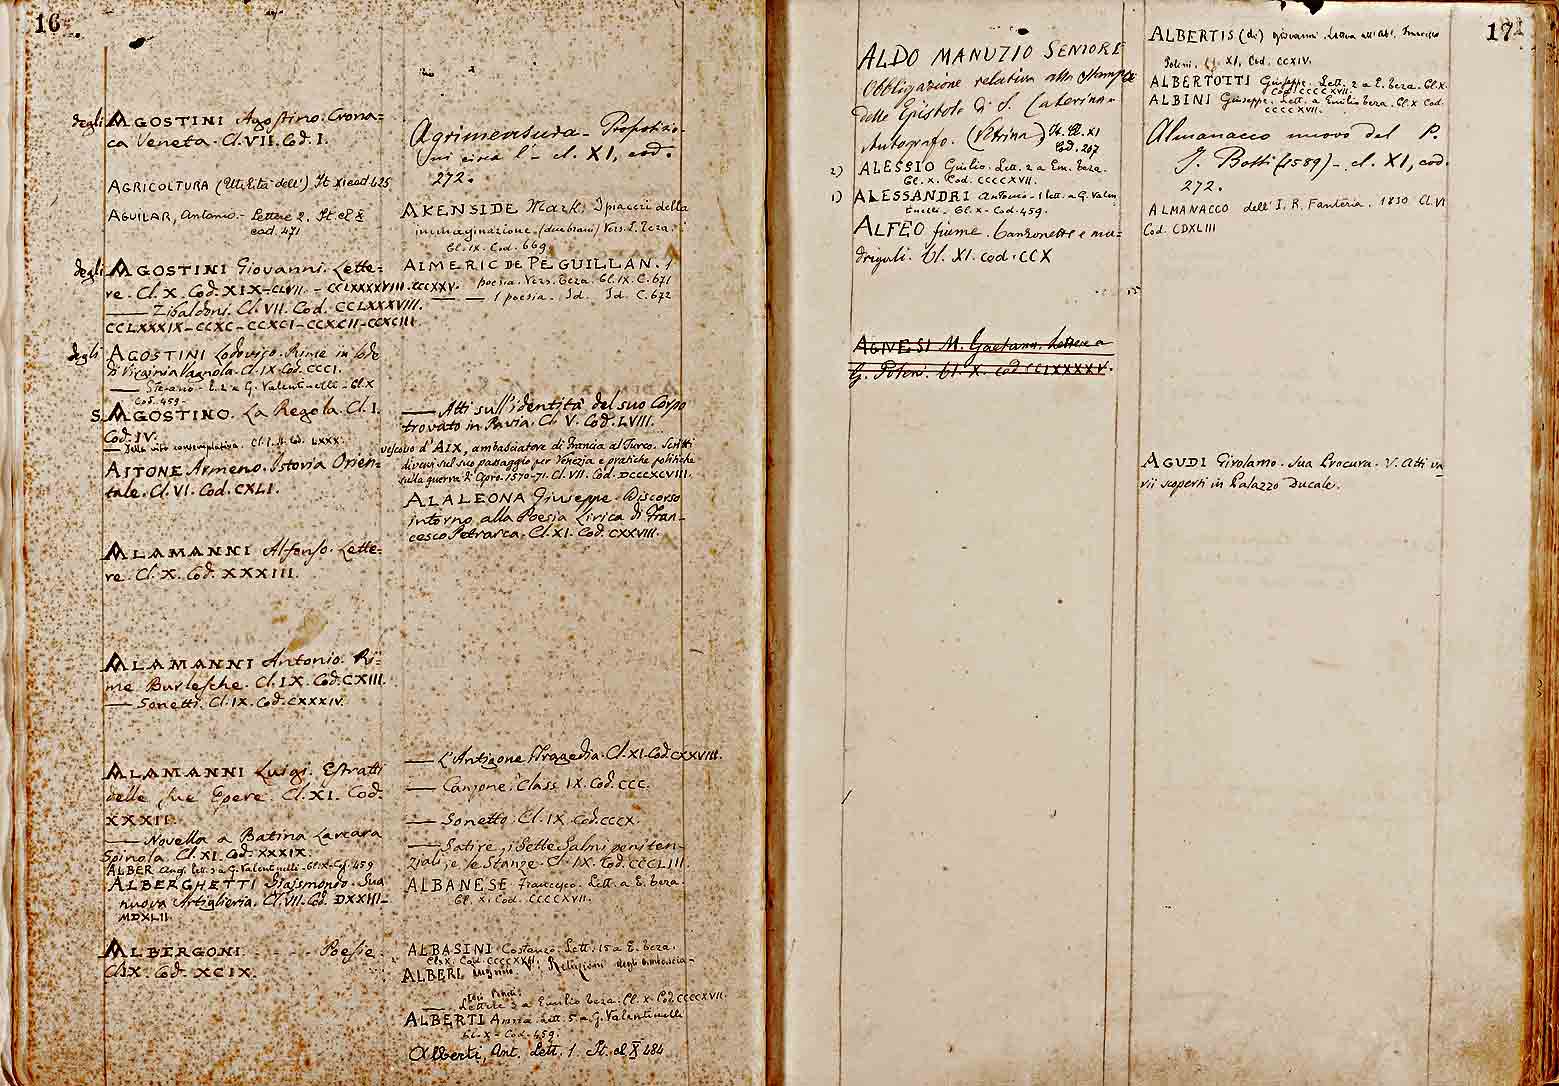 16
degli AGOSTINI Agostino. Crona=
ca Veneta. Cl. VII. Cod. I.
AGRICOLTURA (Utilità dell') It XI cod 625
AGUILAR, Antonio. - Lettere 2. It cl X
cod. 471
degli AGOSTINI Giovanni. Lette=
re. Cl. X. Cod. XIX-CLVII. - CCLXXXXVIII. CCCXXV.
—— Zibaldoni. Cl. VII. Cod. CCLXXXVIII.
CCLXXXIX-CCXC-CCXCI-CCXCII-CCXCIII
degli AGOSTINI Lodovico. Rime in lode
di Virginia Vagnola. Cl. IX. Cod. CCCI.
—— Stefano - L. 2 a G. Valentinelli - Cl. X
Cod. 459-
S. AGOSTINO. La Regola. Cl. I.
Cod. IV.
— Della vita contemplativa. Cl. I. It. Cod. LXXX.
AITONE Armeno. Istoria Orien-
tale. Cl. VI. Cod. CXLI.
ALAMANNI Alfonso. Lette=
re. Cl. X. Cod. XXXIII.
ALAMANNI Antonio. Ri=
me Burlesche. Cl. IX. Cod. CXIII.
—— Sonetti. Cl. IX. Cod. CXXXIV.
ALAMANNI Luigi. Estratti
delle sue Opere. Cl. XI. Cod.
XXXII.
—— Novella a Batina Larcara
Spinola. Cl. XI. Cod. XXXIX.
ALBER Ang. lett. 2 a G. Valentinelli - Cl. X - Cod. 459
ALBERGHETTI Giasmondo. Sua
nuova Artiglieria. Cl. VII. Cod. DXXIII-
MDXLII.
ALBERGONI - - - Poesie.
Cl. IX. Cod. XCIX.
Agrimensura - Proposizio-
ni circa l' - cl. XI, cod.
272.
AKENSIDE Mark. I piaceri della
immaginazione. (due brani) Vers. E. Teza.
Cl. IX. Cod. 669
AIMERIC DE PEGUILLAN. 1
poesia. Vers. Teza. Cl. IX. C. 671
—— —— 1 poesia. Id. Id. C. 672
—— Atti sull'identità del suo Corpo
trovato in Pavia. Cl. V. Cod. LVIII.
vescovo d'AIX, ambasciatore di Francia al Turco. Scritti
diversi sul suo passaggio per Venezia e pratiche politiche
sulla guerra di Cipro. 1570-71. Cl. VII. Cod. DCCCXCVIII.
ALALEONA Giuseppe. Discorso
intorno alla Poesia Lirica di Fran-
cesco Petrarca. Cl. XI. Cod. CXXVIII.
—— L'Antigone Tragedia. Cl. XI. Cod. CXXVIII.
—— Canzone. Class IX. Cod. CCC.
—— Sonetto. Cl. IX. Cod. CCCX.
—— Satire, i Sette Salmi peniten-
ziali, e le Stanze. Cl. IX. Cod. CCCLIII.
ALBANESE Francesco. Lett. a E. Teza.
Cl. X. Cod. CCCCXVII.
ALBASINI Costanzo. Lett. 15 a E. Teza.
Cl. X. Cod. CCCCXVII.
ALBERI Eugenio. V. Relazioni degli ambascia-
tori Veneti.
—— Lettere 2 a Emilio Teza. Cl. X. Cod. CCCCXVII.
ALBERTI Anna. Lett. 5. a G. Valentinelli
Cl. X - Cod. 459.
Alberti, Ant. Lett. 1. It. cl X 484
ALDO MANUZIO SENIORE
Obbligazione relativa alla stampa
delle Epistole di S. Caterina.
Autografo. (Vetrina) It. Cl. XI
Cod. 207
2) ALESSIO Giulio. Lett. 2 a Em. Teza.
Cl. X. Cod. CCCCXVII.
1) ALESSANDRI Antonio - 1 lett. a G. Valen
tinelli. Cl. X - Cod. 459.
ALFEO fiume. Canzonette e ma=
drigali. Cl. XI. cod. CCX
AGNESI M. Gaetana. Lettere a
G. Poleni. Cl. X. cod CCLXXXXV.
17
ALBERTIS (di) Giovanni. Lettera all'Ab. Francesco
Poleni. Cl. XI, Cod. CCXIV.
ALBERTOTTI Giuseppe. Lett. 2 a E. Teza. Cl. X.
Cod. CCCCXVII.
ALBINI Giuseppe. Lett. a Emilio Teza. Cl. X Cod.
CCCCXVII.
Almanacco nuovo del P.
J. Botti (1589) - cl. XI, cod.
272.
ALMANACCO dell'I. R. Fanteria. 1830 Cl. VI
Cod. CDXLIII
AGUDI Girolamo. Sua Procura. V. Atti va
rii scoperti in Palazzo Ducale.